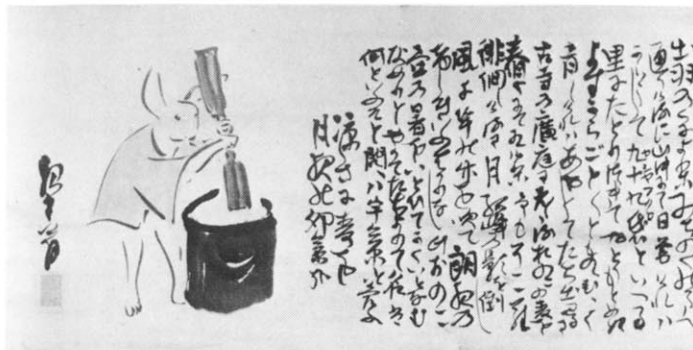 出羽の国よりみちのくのかたへ
通りけるに山中にて日暮ければ
からうじて九十九袋といへる
里にたどりつきてやどりもとめぬ
よすがらごとごとと物のひゞく
音しければあやしくてたち出見るに
古寺の広庭に老たるをのこの麦を
舂にてありけり予もそこら
徘徊しけるに月孤峯の影を倒し
風千竿の竹を吹て朗夜の
けしきいふばかりなし此をのこ
昼の暑をいとひてかくいとなむ
なめりとやがて立よりて名は
何といふぞと問へば宇兵衛と答ふ
涼しさに麦を
月夜の卯兵衛哉